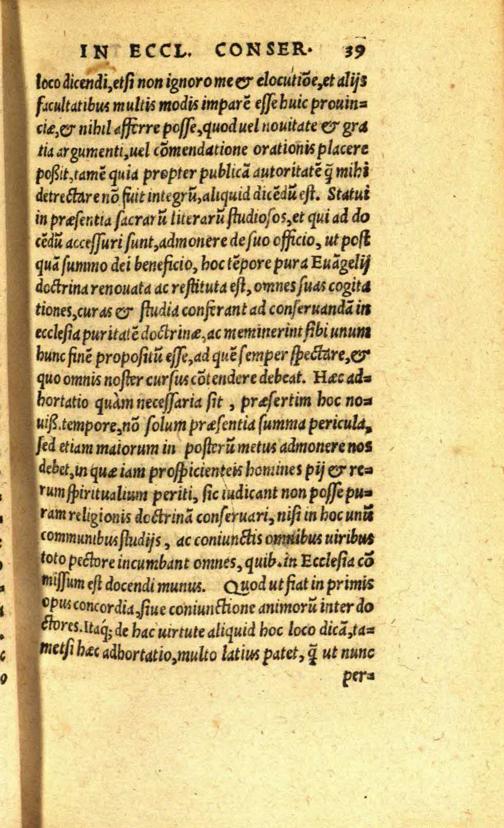 IN ECCL. CONSER. 39
loco dicendi, etsi non ignoro me & elocutiōe, et alijs
facultatibus multis modis imparē esse huic prouin=
ciæ, & nihil afferre posse, quod uel nouitate & gra
tia argumenti, uel cōmendatione orationis placere
poßit, tamē quia propter publicā autoritatē q̄ mihi
detrectare nō fuit integrū, aliquid dicēdū est. Statui
in præsentia sacrarū literarū studiosos, et qui ad do
cēdū accessuri sunt, admonere de suo officio, ut post
quā summo dei beneficio, hoc tēpore pura Euāgelij
doctrina renouata ac restituta est, omnes suas cogita
tiones, curas & studia conferant ad conseruandā in
ecclesia puritatē doctrinæ, ac meminerint sibi unum
hunc finē propositū esse, ad quē semper spectare, &
quo omnis noster cursus cōtendere debeat. Hæc ad=
hortatio quàm necessaria sit, præsertim hoc no=
uiß. tempore, nō solum præsentia summa pericula,
sed etiam maiorum in posterū metus admonere nos
debet, in quæ iam prospicienteis homines pij & re=
rum spiritualium periti, sic iudicant non posse pu=
ram religionis doctrinā conseruari, nisi in hoc unū
communibus studijs, ac coniunctis omnibus uiribus
toto pectore incumbant omnes, quib. in Ecclesia cō
missum est docendi munus. Quod ut fiat in primis
opus concordia, siue coniunctione animorū inter do
ctores. Itaq; de hac uirtute aliquid hoc loco dicā, ta=
metsi hæc adhortatio, multo latius patet, q̄ ut nunc
per=